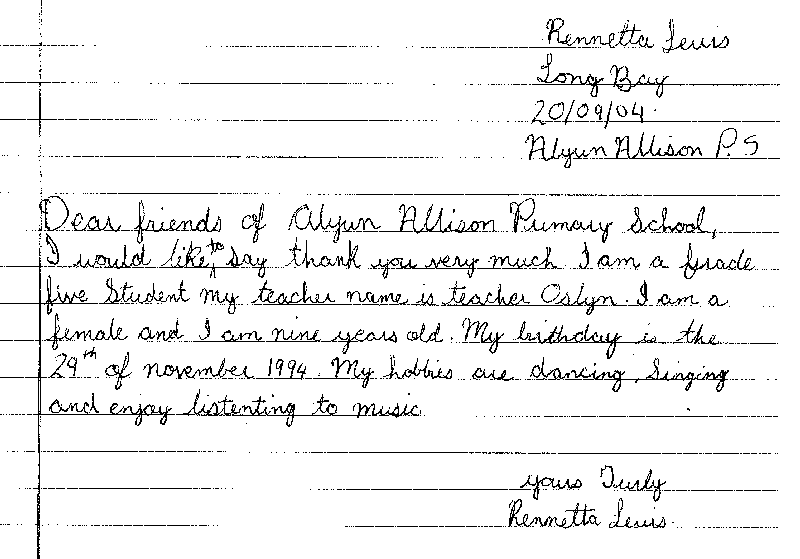 Rennetta Lewis
Long Bay
20/09/04.
Alyun Allison P.S
Dear friends of Alyun Allison Primary School,
I would like to say thank you very much I am a grade
five Student my teacher name is teacher Oslyn. I am a
female and I am nine years old. My birthday is the
29th of november 1994. My hobbies are dancing, Singing
and enjoy listenting to music
yours Turly
Rennetta Lewis.